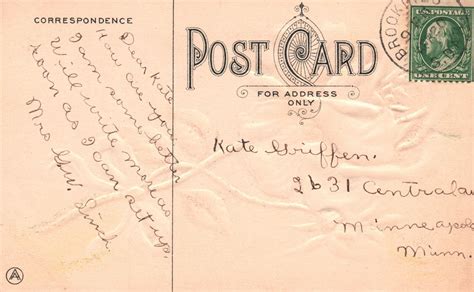 CORRESPONDENCE
POST CARD
FOR ADDRESS
ONLY
U.S. POSTAGE
ONE CENT
BROOK
Dear Kate
How are you
I am some better
Will write more as
soon as I can set up.
Mrs
Kate Griffen.
2631 Central
Minneapo
Minn.
A